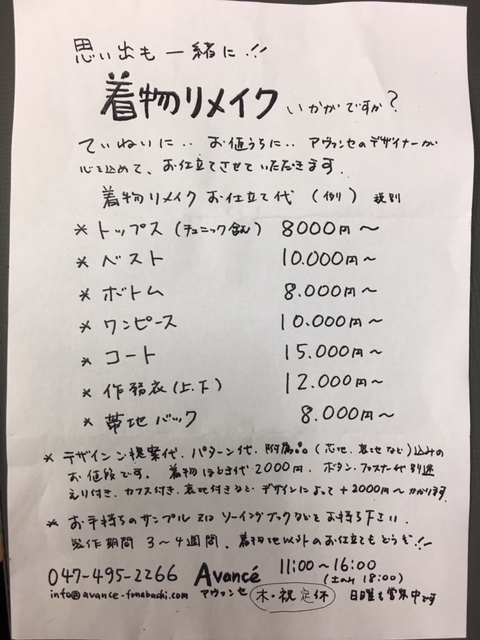 思い出も一緒に!!
着物リメイク いかがですか?
ていねいに‥ お値うちに‥ アヴァンセのデザイナーが
心を込めて、お仕立てさせていただきます.
着物リメイク お仕立て代 (例) 税別
* トップス (チュニック含ム) 8000円〜
* ベスト 10.000円〜
* ボトム 8.000円〜
* ワンピース 10.000円〜
* コート 15.000円〜
* 作務衣(上.下) 12.000円〜
* 帯地バック 8.000円〜
* デザインご提案代. パターン代. 附属品 (芯地. 裏地など)込みの
お値段です. 着物ほどき代2000円. ボタン・ファスナー代別途
えり付き. カフス付き. 裏地付きなど デザインによって +2000円〜かかります.
* お手持ちのサンプル 又は ソーイングブックなどをお持ち下さい.
製作期間 3〜4週間. 着物地以外のお仕立てもどうぞ!!
047-495-2266 Avancé 11:00〜16:00
アヴァンセ (土のみ 18:00)
info@avance-funabashi.com 木・祝 定休 日曜も営業中です